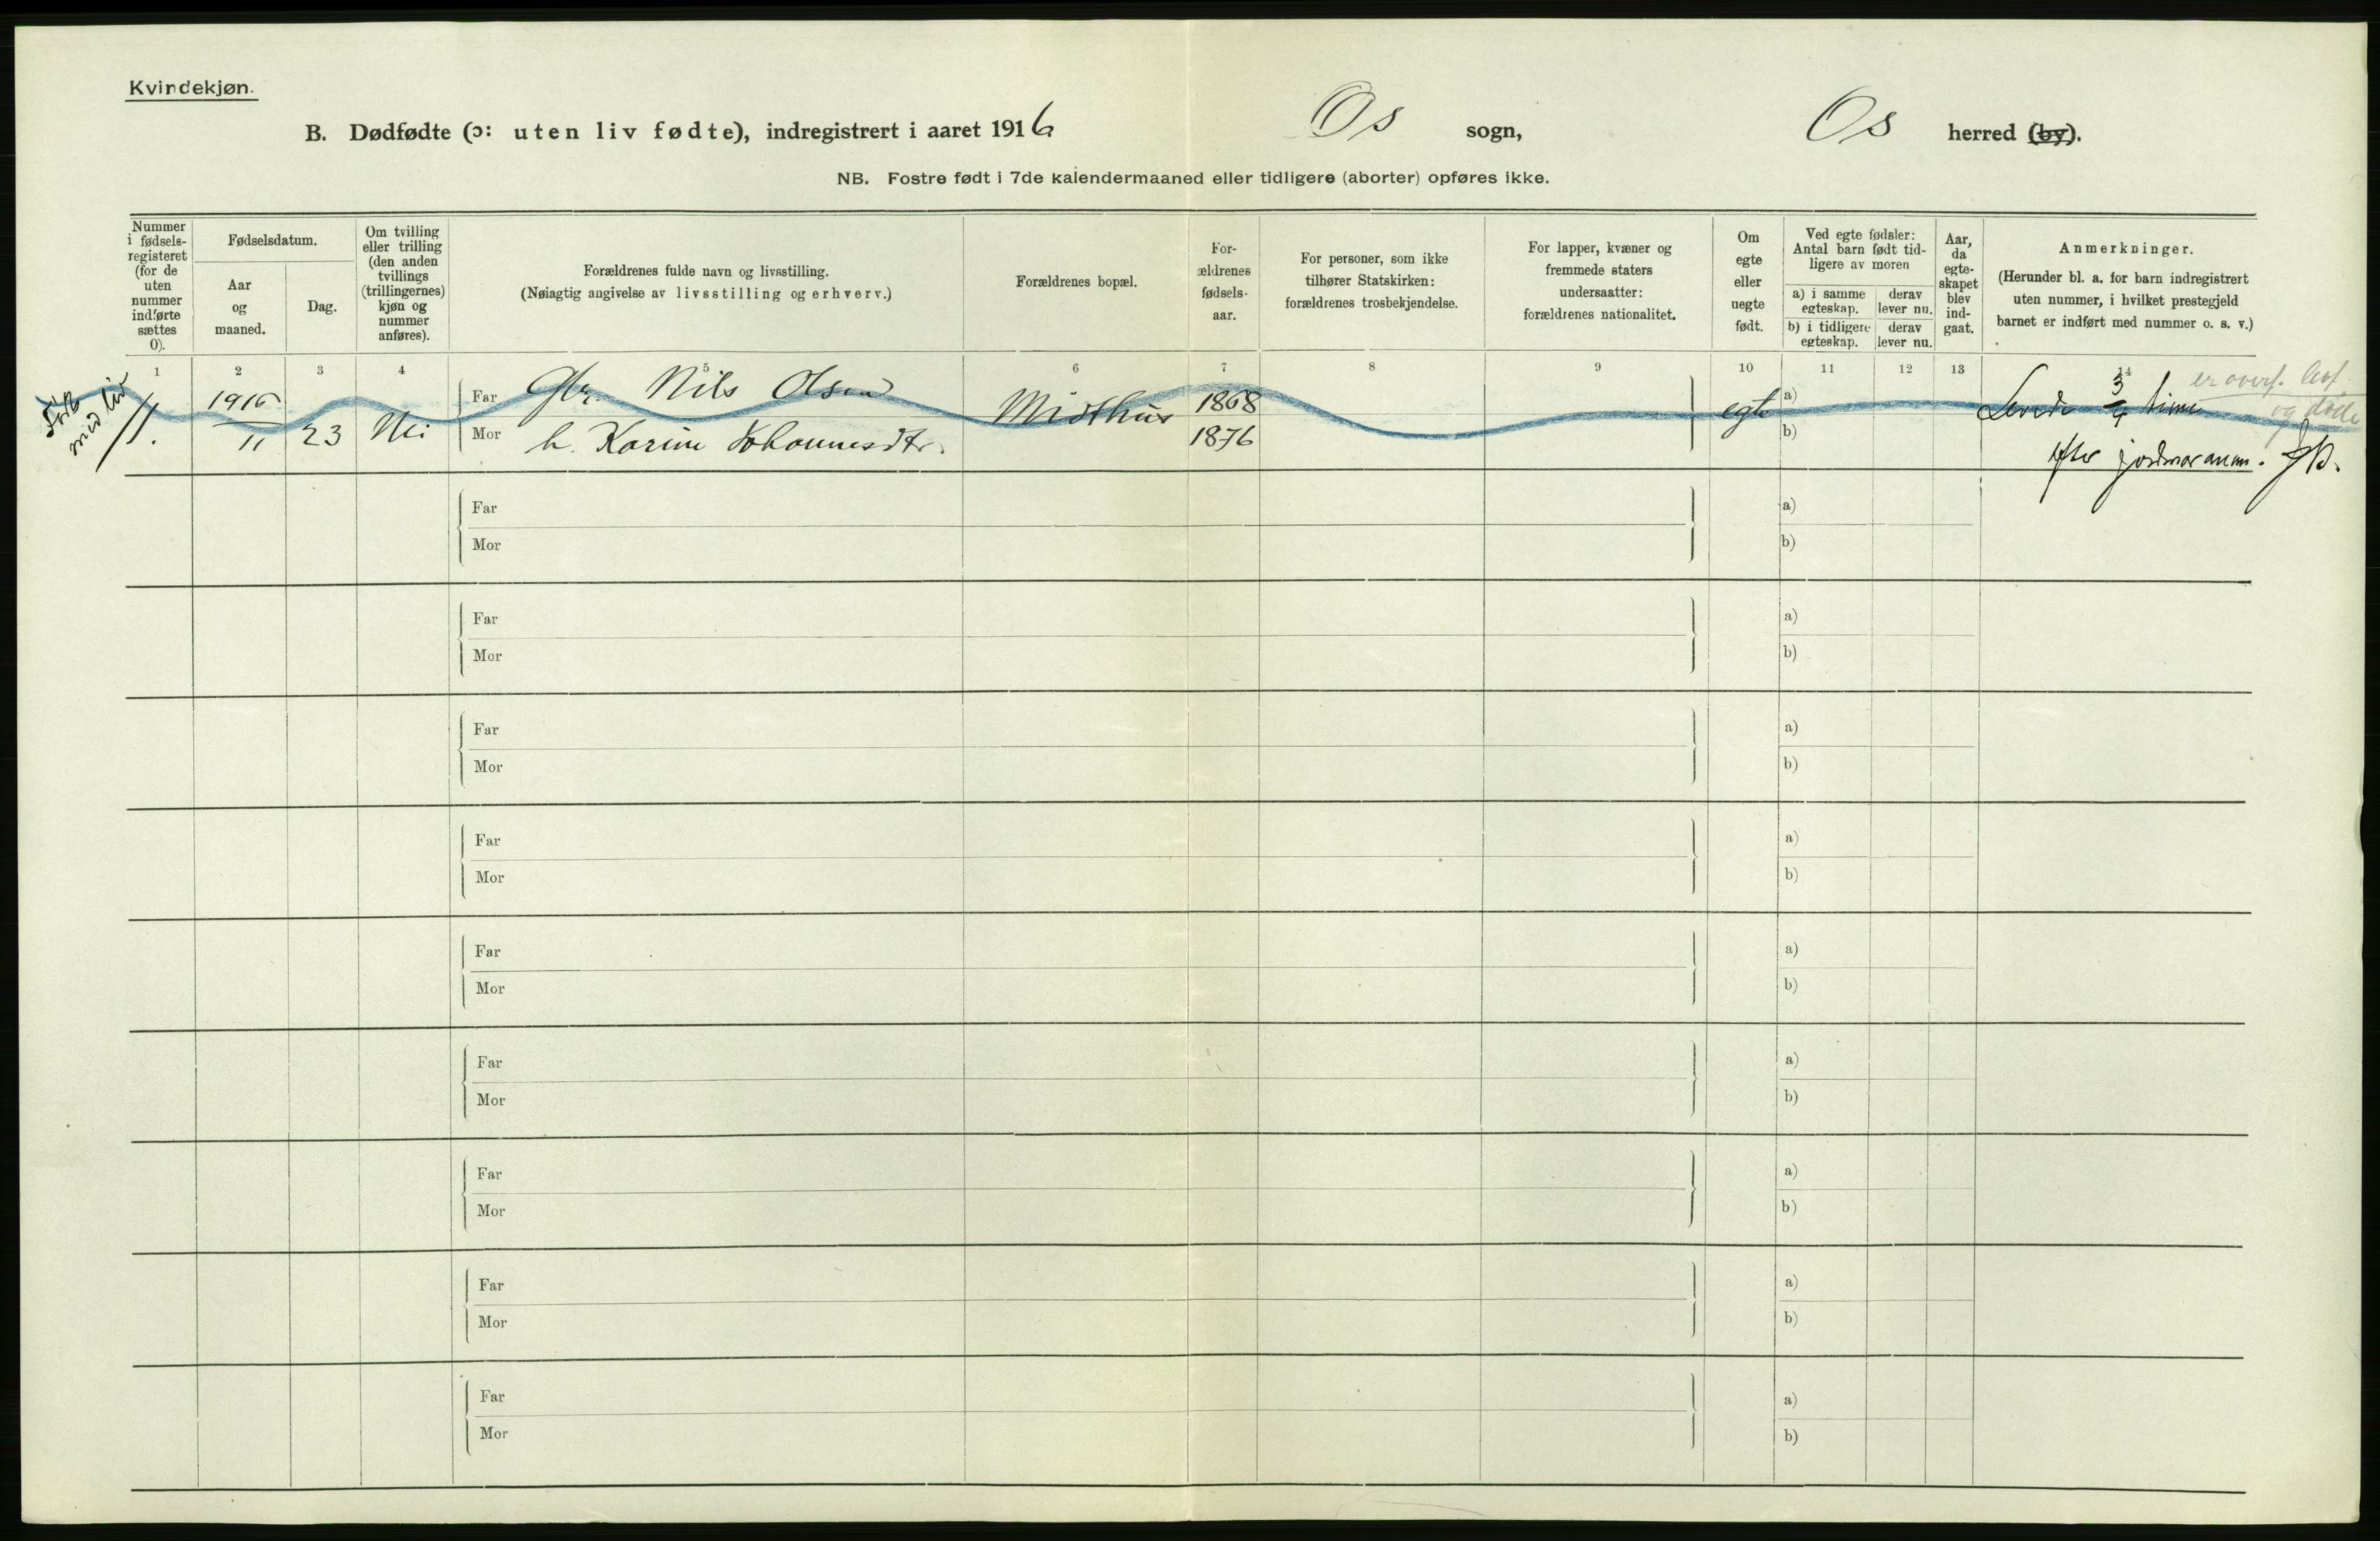 Kvindekjøn.
B. Dødfødte (ɔ: uten liv fødte), indregistrert i aaret 1916 Os sogn, Os herred (by).
NB. Fostre født i 7de kalendermaaned eller tidligere (aborter) opføres ikke.
Nummer i fødsels-registeret (for de uten nummer indførte sættes 0).
Fødselsdatum.
Aar og maaned.
Dag.
Om tvilling eller trilling (den anden tvillings (trillingernes) kjøn og nummer anføres).
Forældrenes fulde navn og livsstilling.
(Nøiagtig angivelse av livsstilling og erhverv.)
Forældrenes bopæl.
For-ældrenes fødsels-aar.
For personer, som ikke tilhører Statskirken: forældrenes trosbekjendelse.
For lapper, kvæner og fremmede staters undersaatter: forældrenes nationalitet.
Om egte eller uegte født.
Ved egte fødsler: Antal barn født tid-ligere av moren
a) i samme egteskap. derav lever nu.
b) i tidligere egteskap. derav lever nu.
Aar, da egte-skapet blev ind-gaat.
Anmerkninger.
(Herunder bl. a. for barn indregistrert uten nummer, i hvilket prestegjeld barnet er indført med nummer o. s. v.)
1 2 3 4 5 6 7 8 9 10 11 12 13 14
med liv
1. 1916 II 23 Nei
Far Gbr. Nils Olsen Midthus 1868 egte a) Levede 3/4 time er overf. lev. og døde
Mor h. Karine Johannesdtr. 1876 b) efter jordmor anm.
Far a)
Mor b)
Far a)
Mor b)
Far a)
Mor b)
Far a)
Mor b)
Far a)
Mor b)
Far a)
Mor b)
Far a)
Mor b)
Far a)
Mor b)
Far a)
Mor b)